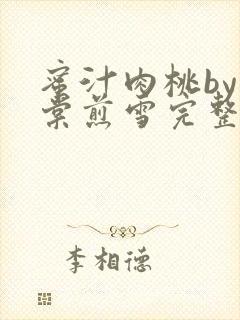 蜜汁肉桃by
棠煎雪完整
李相德